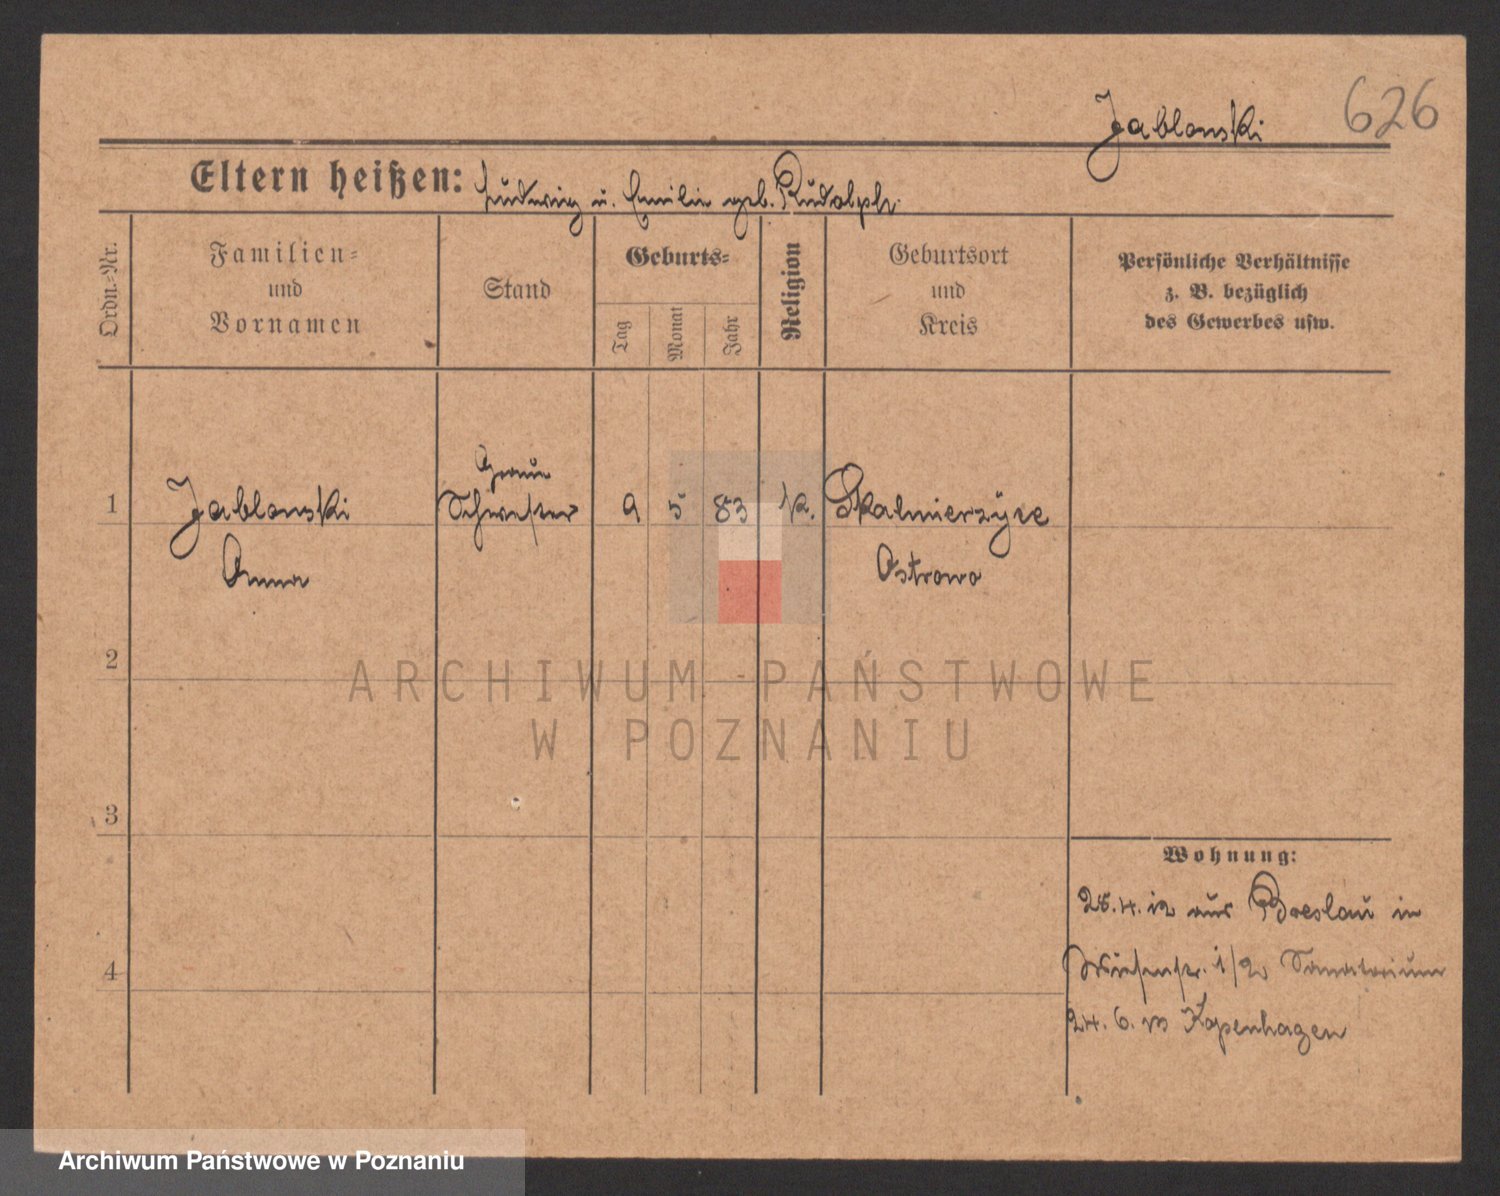 Jablonski 626
Eltern heißen: Ludwig u. Emilie geb. Rudolph.
Ordn.-Nr.
Familien-
und
Vornamen
Stand
Geburts-
Tag
Monat
Jahr
Religion
Geburtsort
und
Kreis
Persönliche Verhältnisse
z. B. bezüglich
des Gewerbes usw.
Graue
1 Jablonski Schwester 9 5 83 k. Skalmierzyce
Anna Ostrowo
2
ARCHIWUM PAŃSTWOWE
W POZNANIU
3
Wohnung:
25.4.12 aus Breslau in
Wiesenstr. 1/2 Sanatorium
4
24.6.13 Kopenhagen
Archiwum Państwowe w Poznaniu